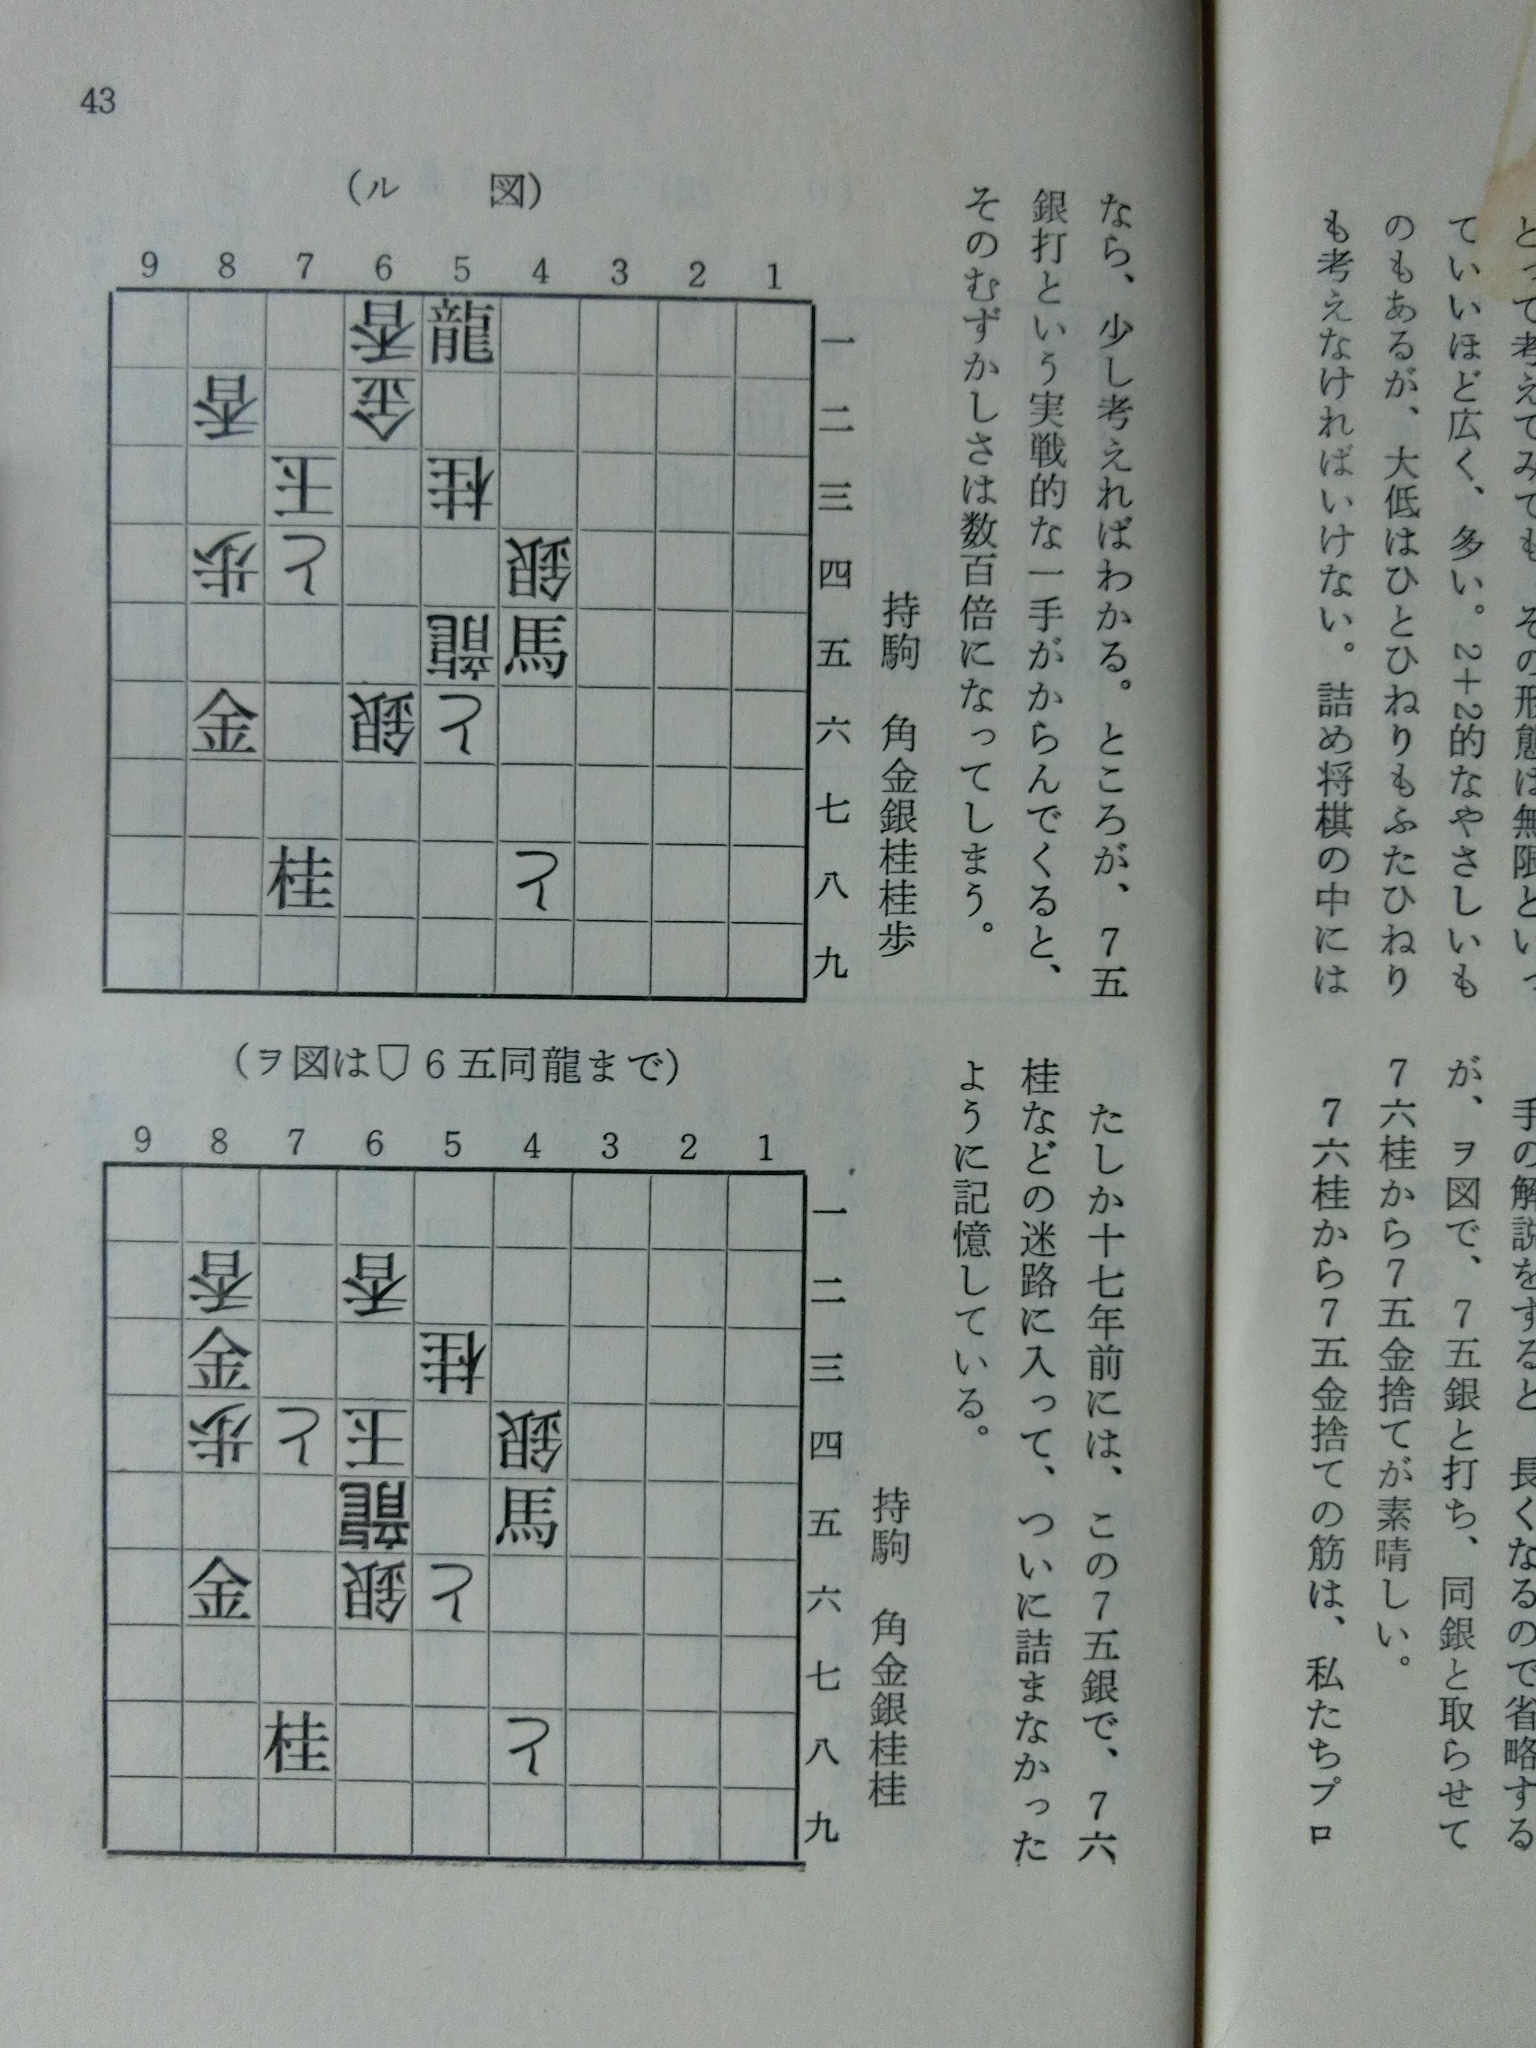 とって考えてみても、その形態は無限といっ
ていいほど広く、多い。2+2的なやさしいも
のもあるが、大低はひとひねりもふたひねり
も考えなければいけない。詰め将棋の中には
手の解説をすると、長くなるので省略する
が、ヲ図で、7五銀と打ち、同銀と取らせて
7六桂から7五金捨てが素晴しい。
7六桂から7五金捨ての筋は、私たちプロ
なら、少し考えればわかる。ところが、7五
銀打という実戦的な一手がからんでくると、
そのむずかしさは数百倍になってしまう。
たしか十七年前には、この7五銀で、7六
桂などの迷路に入って、ついに詰まなかった
ように記憶している。
(ル 図)
持駒 角金銀桂桂歩
9 8 7 6 5 4 3 2 1
香 龍 一
香 金 二
玉 桂 三
歩 と 銀 四
龍 馬 五
金 銀 と 六
七
桂 と 八
九
(ヲ図は☖6五同龍まで)
持駒 角金銀桂桂
9 8 7 6 5 4 3 2 1
一
香 香 二
金 桂 三
歩 と 玉 銀 四
龍 馬 五
金 銀 と 六
七
桂 と 八
九
43